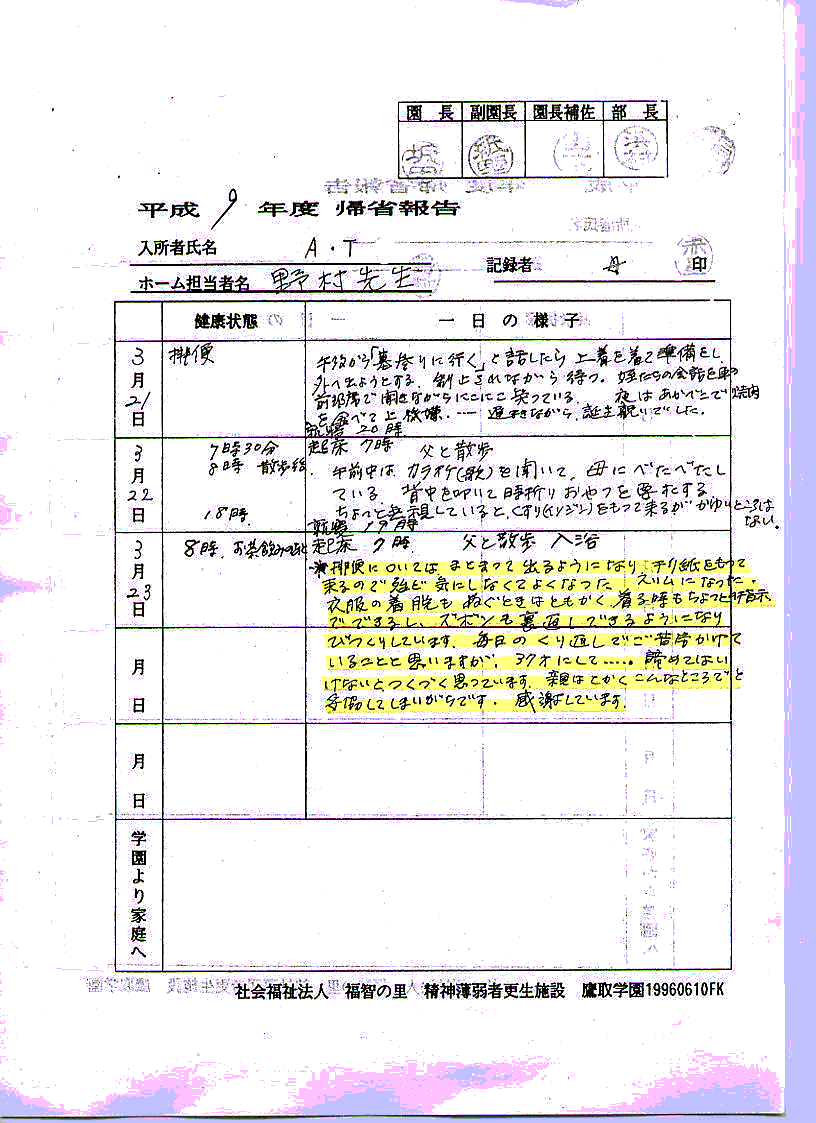 園長 副園長 園長補佐 部長
平成 9 年度 帰省報告
入所者氏名 A・T
記録者 母 印
ホーム担当者名 野村先生
健康状態 一日の様子
3月21日
排便
午後から「墓参りに行く」と話したら上着を着て準備をし
外へ出ようとする。制止されながら待つ。姪たちの会話を車の
前座席で聞きながらにこにこ笑っている。 夜はあかべこで焼肉
を食べて上機嫌。…遅まきながら、誕生祝いでした。
就寝 20時
3月22日
7時30分
8時 散歩後
18時
起床 7時 父と散歩
午前中は カラオケ(歌)を聞いて、母にべたべたし
ている。背中を叩いて時折りおやつを要求する
ちょっと無視していると、くすり(キンジン)をもって来るがかゆいところは
ない。
就寝 19時
3月23日
8時、お茶飲みのあと
起床 7時 父と散歩 入浴
排便については、まとまって出るようになり、チリ紙をもって
来るので殆ど気にしなくてよくなった スリムになった。
衣服の着脱も ぬぐときはともかく、着る時もちょっとの指示
でできるし、ズボンも裏返しできるようになり
びっくりしています。毎日のくり返しでご苦労かけて
いることと思いますが、ヨクオにして……。諦めてはい
けないとつくづく思っています。親はとかくこんなところでと
妥協してしまいがちです。感謝しています。
月 日
月 日
学園より家庭へ
社会福祉法人 福智の里 精神薄弱者更生施設 鷹取学園19960610FK